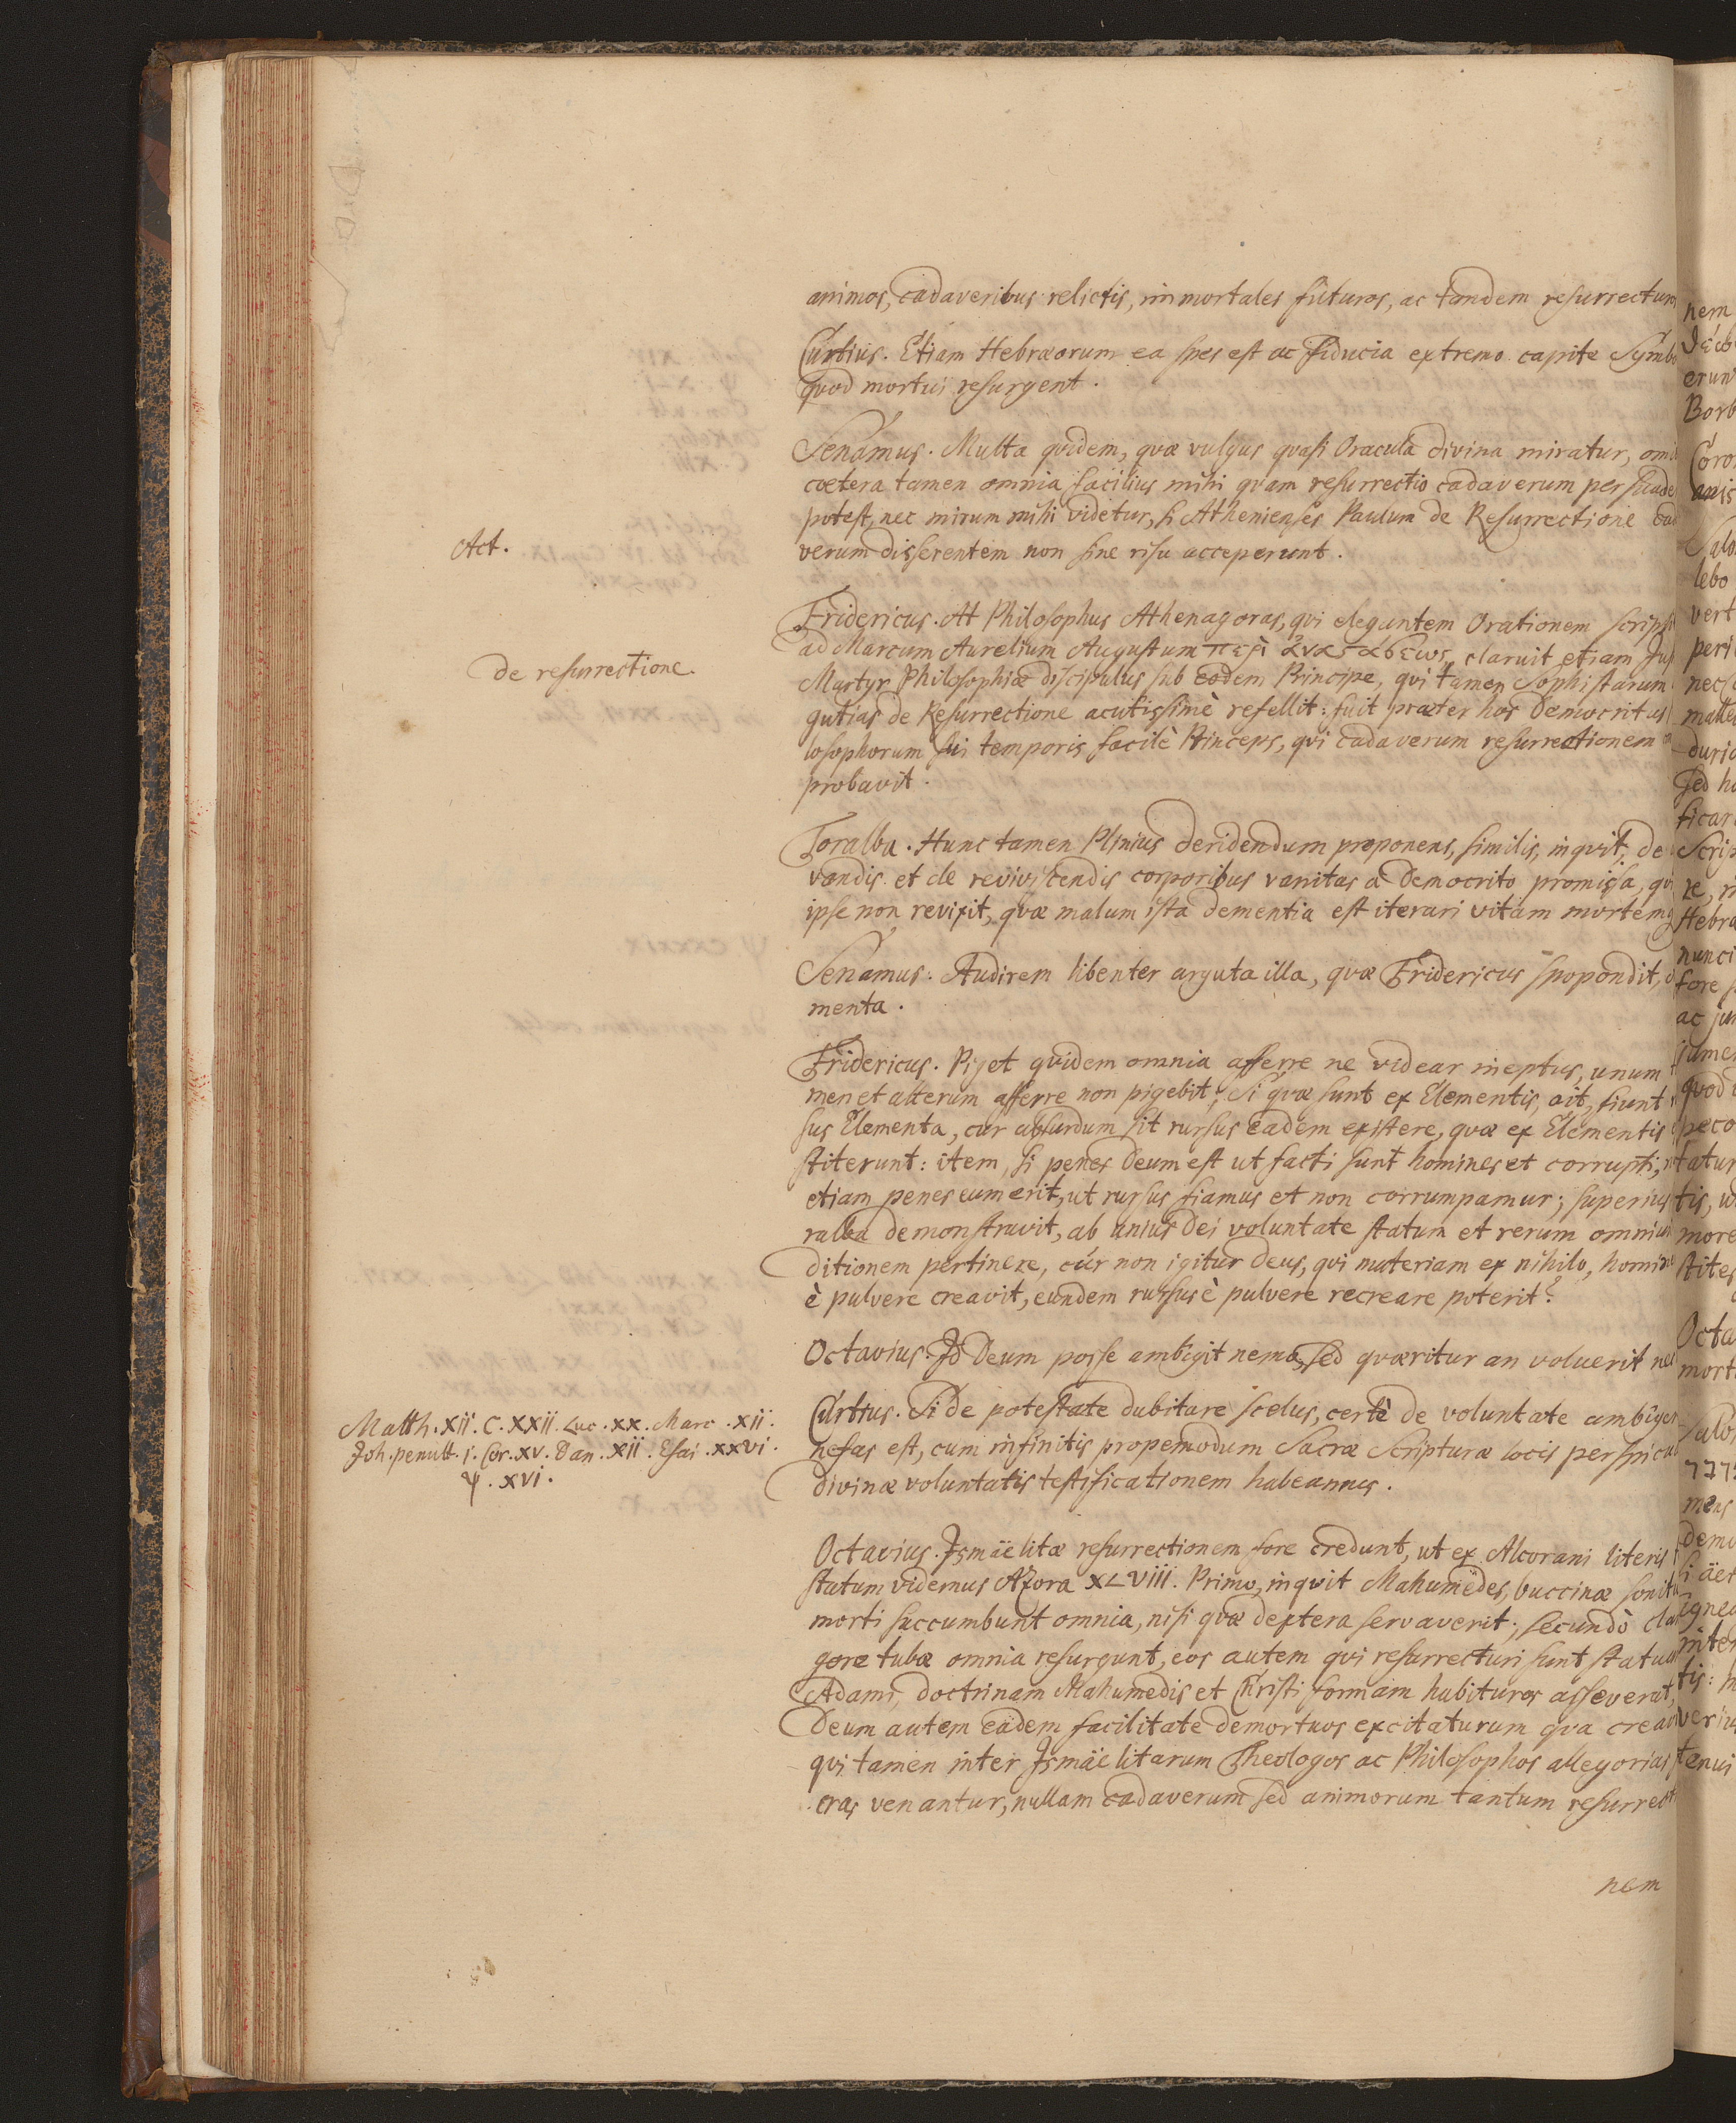 animos, cadaveribus relictis, immortales futuros, ac tandem resurrectur
Curtius. Etiam Hebræorum ea spes est ac fiducia extremo capite Symbo
quod mortui resurgent.
Senamus. Multa quidem, quæ vulgus quasi Oracula divina miratur, omi
cœtera tamen omnia facilius mihi quam resurrectio cadaverum persuade
potest, nec mirum mihi videtur, si Athenienses Paulum de Resurrectione cad
Act.
verum disserentem non sine risu acceperunt.
Fridericus. At Philosophus Athenagoras, qui elegantem Orationem scripsi
ad Marcum Aurelium Augustum περὶ ἀναϛάσεως, claruit etiam Jus
de resurrectione.
Martyr Philosophiæ discipulus sub eodem Principe, qui tamen Sophistarum
gutias de Resurrectione acutissimè refellit: fuit præter hos Democritus
losophorum sui temporis facilè Princeps, qui cadaverum resurrectionem
probavit.
Toralba. Hunc tamen Plinius deridendum proponens, similis, inquit, de
vandis et de reviviscendis corporibus vanitas a Democrito promissa, qui
ipse non revixit, quæ malum ista dementia est iterari vitam mortemq
Senamus. Audirem libenter arguta illa, quæ Fridericus spopondit,
menta.
Fridericus. Piget quidem omnia afferre ne videar ineptus, unum
men et alterum afferre non pigebit; Si quæ sunt ex Elementis, ait, fiunt
sus Elementa, cur absurdum sit rursus eadem existere, quæ ex Elementis
stiterunt: item, si penes Deum est ut facti sunt homines et corrupti,
etiam penes eum erit, ut rursus fiamus et non corrumpamur; superius
ralba demonstravit, ab unius Dei voluntate statum et rerum omnium
ditionem pertinere, cúr non igitur Deus, qui materiam ex nihilo, homine
è pulvere creavit, eundem rursus è pulvere recreare poterit?
Octavius. Id Deum posse ambigit nemo, sed quæritur an voluerit nec
Matth. XII. C. XXII. Luc. XX. Marc. XII.
Joh. penult. 1. Cor. XV. Dan. XII. Esai. XXVI.
Ψ. XVI.
Curtius. Si de potestate dubitare scelus, certè de voluntate ambiger
nefas est, cum infinitis propemodum Sacræ Scripturæ locis perspicua
divinæ voluntatis testificationem habeamus.
Octavius. Ismäelitæ resurrectionem fore credunt, ut ex Alcorani literis
statum videmus Azora XLVIII. Primo, inquit Mahumëdes, buccinæ sonitu
morti succumbunt omnia, nisi quæ dextera servaverit; secundò clan
gore tubæ omnia resurgunt, eos autem qui resurrecturi sunt statua
Adami, doctrinam Mahumedis et Christi formam habituros asseverat,
Deum autem eâdem facilitate demortuos excitaturum qua creavi
qui tamen inter Ismäelitarum Theologos ac Philosophos allegorias
cras venantur, nullam cadaverum sed animorum tantum resurrecti
nem
nem
erun
Borb
Coro
anis
Salo
lebo
vert
peri
duri
sed h
ficar
Scrip
Hebra
nunci
fore
ac ju
jume
quod
peco
tatur
tis, u
more
stites
Octa
mort
Salo
mens
demo
si äet
ignea
inter
tis:
veriu
tenui